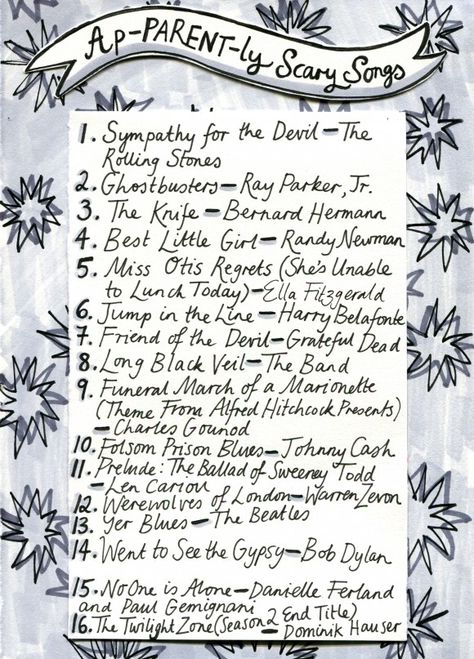 Ap-PARENT-ly Scary Songs
1. Sympathy for the Devil – The
Rolling Stones
2. Ghostbusters – Ray Parker, Jr.
3. The Knife – Bernard Hermann
4. Best Little Girl – Randy Newman
5. Miss Otis Regrets (She's Unable
to Lunch Today) – Ella Fitzgerald
6. Jump in the Line – Harry Belafonte
7. Friend of the Devil – Grateful Dead
8. Long Black Veil – The Band
9. Funeral March of a Marionette
(Theme From Alfred Hitchcock Presents)
– Charles Gounod
10. Folsom Prison Blues – Johnny Cash
11. Prelude: The Ballad of Sweeney Todd
– Len Cariou
12. Werewolves of London – Warren Zevon
13. Yer Blues – The Beatles
14. Went to See the Gypsy – Bob Dylan
15. No One is Alone – Danielle Ferland
and Paul Gemignani
16. The Twilight Zone (Season 2 End Title)
– Dominik Hauser